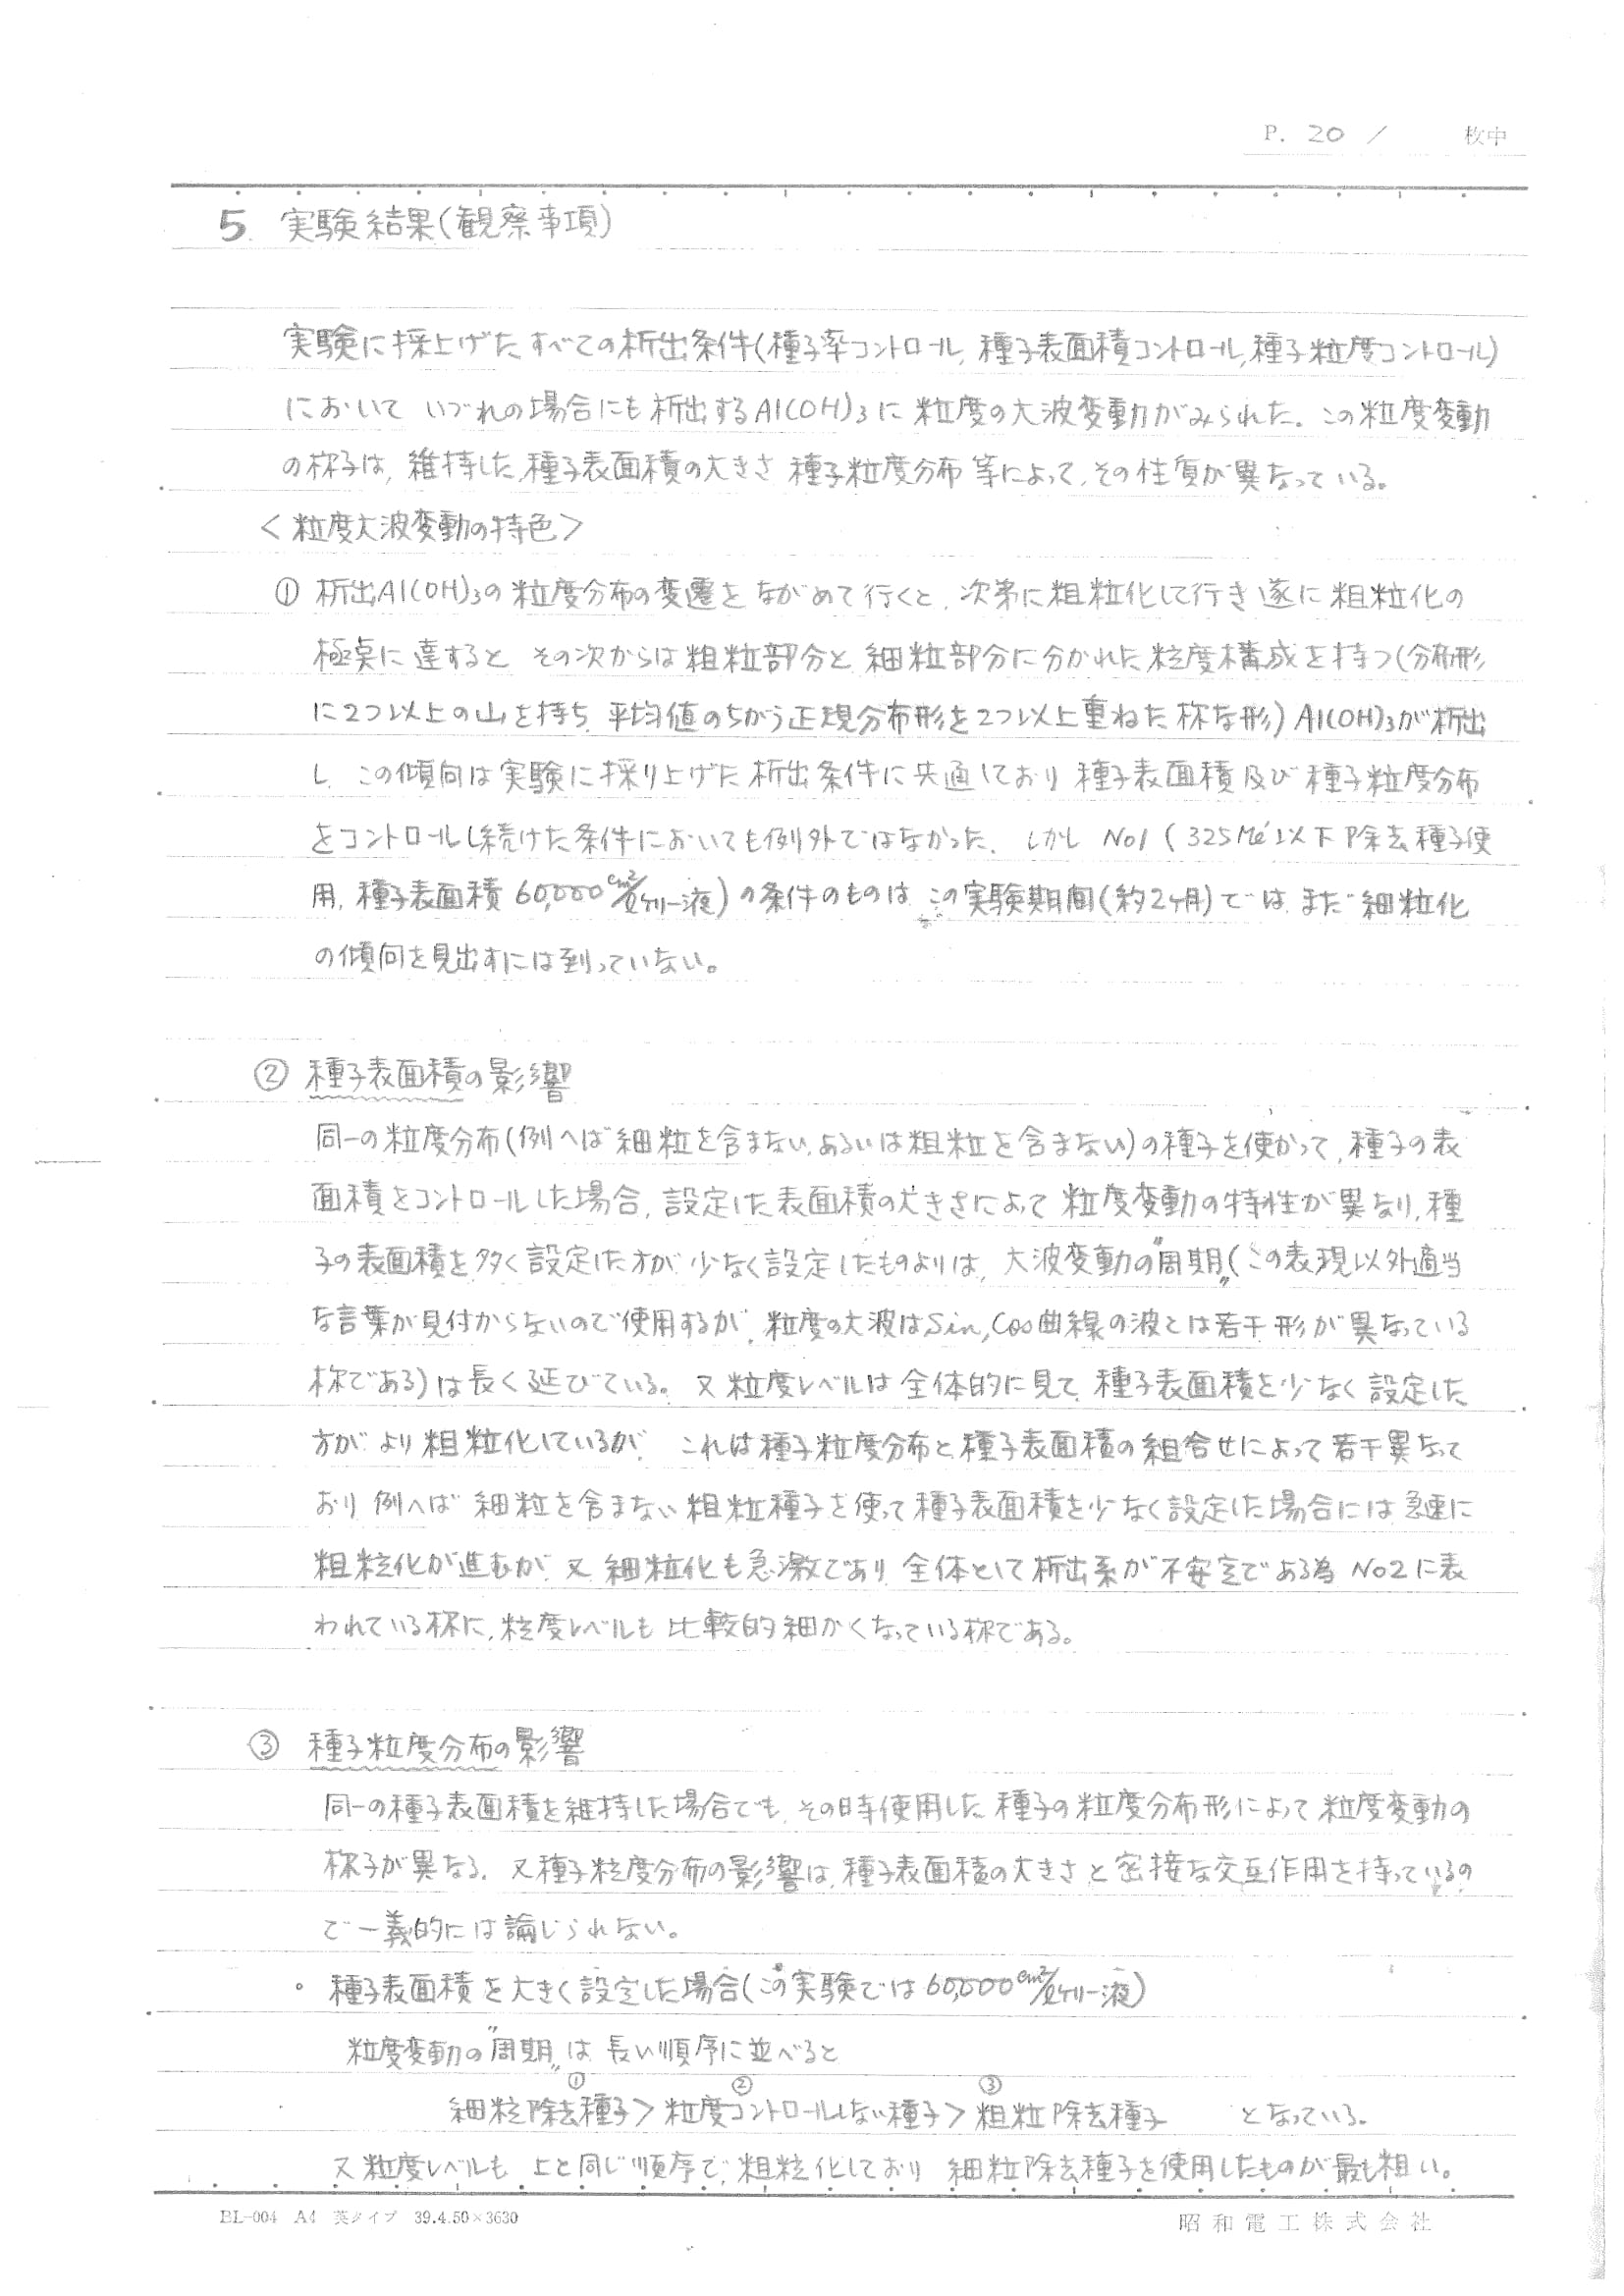 P. 20 / 枚中
5. 実験結果(観察事項)
実験に採上げたすべての析出条件(種子率コントロール, 種子表面積コントロール, 種子粒度コントロール)
において いづれの場合にも析出するAl(OH)₃に粒度の大波変動がみられた。この粒度変動
の様子は, 維持した種子表面積の大きさ 種子粒度分布 等によって, その性質が異なっている。
<粒度大波変動の特色>
① 析出Al(OH)₃の粒度分布の変遷をながめて行くと, 次第に粗粒化して行き遂に粗粒化の
極点に達すると その次からは粗粒部分と細粒部分に分かれた粒度構成を持つ(分布形
に2つ以上の山を持ち 平均値のちがう正規分布形を2つ以上重ねた様な形) Al(OH)₃が析出
し, この傾向は実験に採り上げた析出条件に共通しており 種子表面積及び種子粒度分布
をコントロールし続けた条件においても例外ではなかった。しかし No1 (325Me'以下除去種子使
用, 種子表面積 60,000cm²/ℓケリー液)の条件のものは この実験期間(約2ヶ月)では まだ細粒化
の傾向を見出すには到っていない。
② 種子表面積の影響
同一の粒度分布(例へば細粒を含まない, あるいは粗粒を含まない)の種子を使かって, 種子の表
面積をコントロールした場合, 設定した表面積の大きさによって 粒度変動の特性が異なり, 種
子の表面積を多く設定した方が少なく設定したものよりは, 大波変動の〝周期〟(この表現以外適当
な言葉が見付からないので使用するが, 粒度の大波はSin, Cos曲線の波とは若干形が異なっている
様である)は長く延びている。又粒度レベルは全体的に見て, 種子表面積を少なく設定した
方が より粗粒化しているが, これは種子粒度分布と種子表面積の組合せによって若干異なって
おり 例へば 細粒を含まない粗粒種子を使って種子表面積を少なく設定した場合には急速に
粗粒化が進むが, 又 細粒化も急激であり 全体として析出系が不安定である為 No2に表
われている様に, 粒度レベルも 比較的細かくなっている様である。
③ 種子粒度分布の影響
同一の種子表面積を維持した場合でも, その時使用した種子の粒度分布形によって粒度変動の
様子が異なる。又種子粒度分布の影響は, 種子表面積の大きさと密接な交互作用を持っているの
で一義的には論じられない。
。 種子表面積を大きく設定した場合(この実験では60,000cm²/ℓケリー液)
粒度変動の〝周期〟は長い順序に並べると
① ② ③
細粒除去種子>粒度コントロールしない種子>粗粒除去種子 となっている。
又粒度レベルも 上と同じ順序で, 粗粒化しており 細粒除去種子を使用したものが最も粗い。
BL-004 A4 英タイプ 39.4.50×3630
昭和電工株式会社